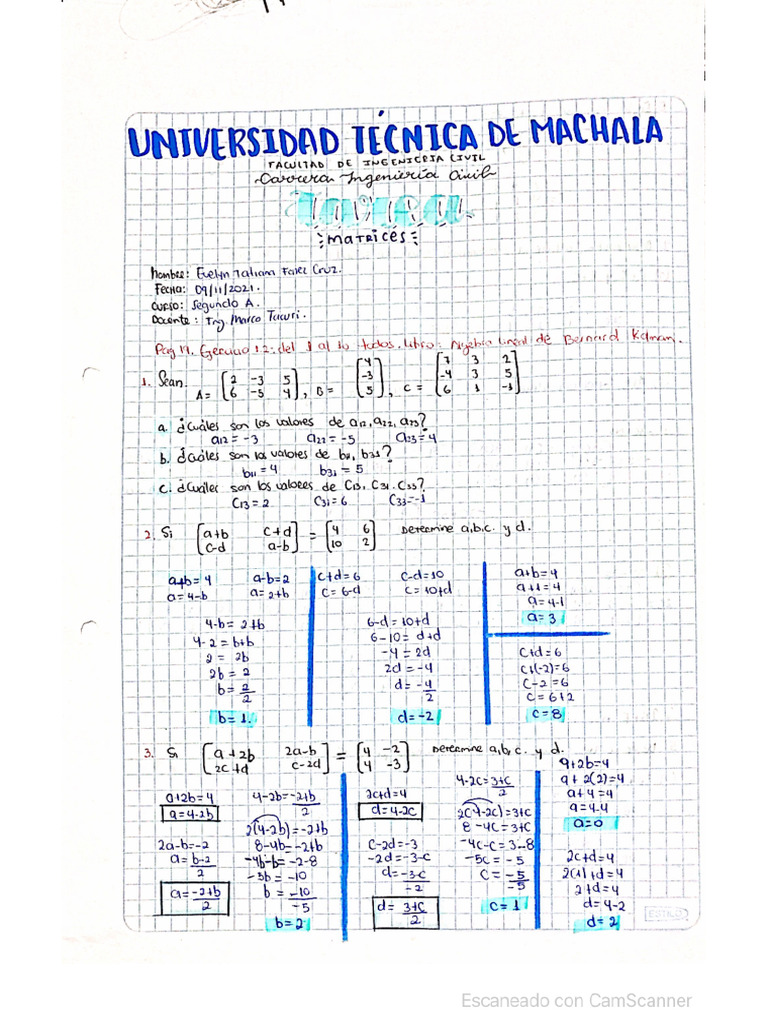 UNIVERSIDAD TÉCNICA DE MACHALA
FACULTAD DE INGENIERIA CIVIL
Carrera Ingeniería Civil
Tarea
MATRICES
Nombre: Evelyn Tatiana Farez Cruz.
Fecha: 09/11/2021.
Curso: Segundo A.
Docente: Ing. Marco Tacuri.
Pag 19. Ejercicio 1.2: del 1 al 10 todos. Libro: Algebra lineal de Bernard Kolman.
1. Sean.
A= [2 -3 5
6 -5 4], B= [4
-3
5], C= [7 3 2
-4 3 5
6 1 -1]
a. ¿Cuáles son los valores de a12, a22, a23?
a12 = -3 a22 = -5 a23 = 4
b. ¿Cuáles son los valores de b11, b31?
b11 = 4 b31 = 5
c. ¿Cuáles son los valores de C13, C31, C33?
C13 = 2 C31 = 6 C33 = -1
2. Si [a+b c+d
c-d a-b] = [4 6
10 2] Determine a, b, c. y d.
a+b=4 a-b=2
a=4-b a=2+b
4-b=2+b
4-2=b+b
2=2b
2b=2
b=2/2
b=1.
c+d=6 c-d=10
c=6-d c=10+d
6-d=10+d
6-10=d+d
-4=2d
2d=-4
d=-4/2
d=-2
a+b=4
a+1=4
a=4-1
a=3
c+d=6
c+(-2)=6
c-2=6
c=6+2
c=8
3. Si [a+2b 2a-b
2c+d c-2d] = [4 -2
4 -3] Determine a, b, c. y d.
a+2b=4
a=4-2b
2a-b=-2
a=b-2/2
a=-2+b/2
4-2b=-2+b/2
2(4-2b)=-2+b
8-4b=-2+b
-4b-b=-2-8
-5b=-10
b=-10/-5
b=2
2c+d=4
d=4-2c
c-2d=-3
-2d=-3-c
d=-3-c/-2
d=3+c/2
4-2c=3+c/2
2(4-2c)=3+c
8-4c=3+c
-4c-c=3-8
-5c=-5
c=-5/-5
c=1
a+2b=4
a+2(2)=4
a+4=4
a=4-4
a=0
2c+d=4
2(1)+d=4
2+d=4
d=4-2
d=2
ESTILO
Escaneado con CamScanner